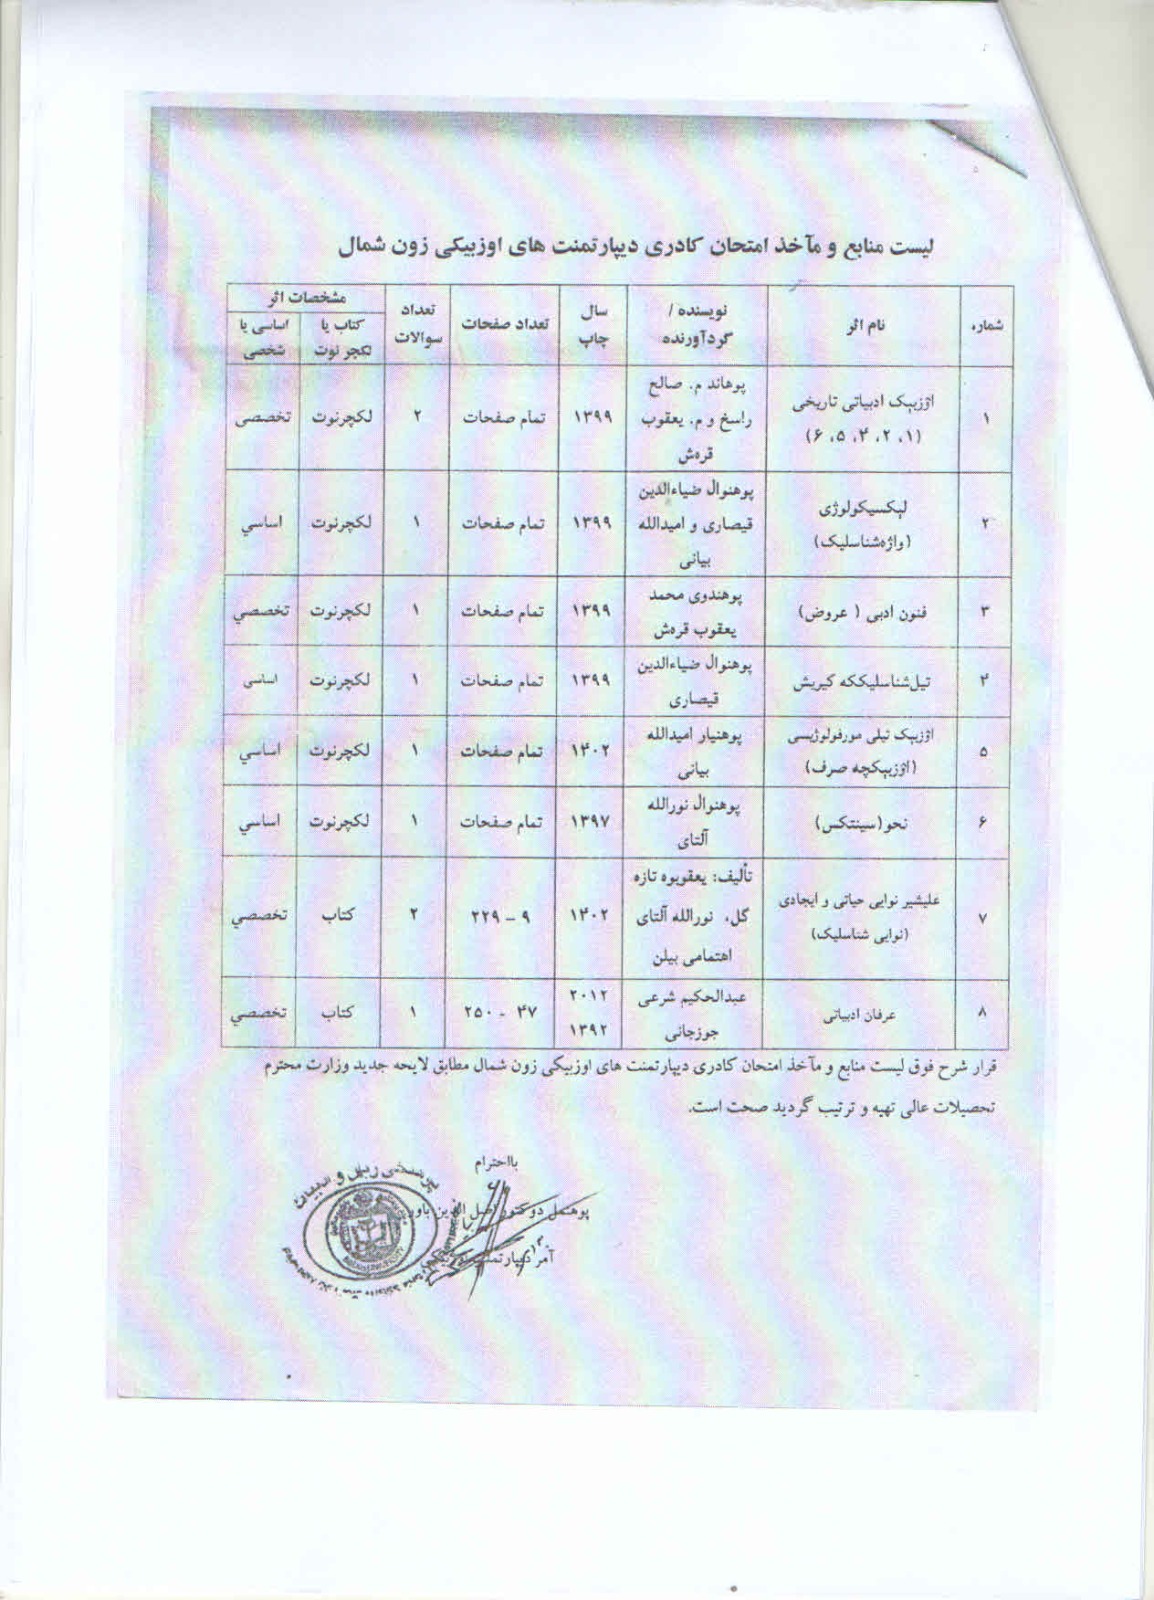 لیست منابع و مآخذ امتحان کادری دیپارتمنت های اوزبیکی زون شمال
شماره | نام اثر | نویسنده / گردآورنده | سال چاپ | تعداد صفحات | تعداد سوالات | مشخصات اثر
کتاب یا لکچر نوت | اساسی یا شخصی
۱ | اۉزبېک ادبیاتی تاریخی (۱، ۲، ۴، ۵، ۶) | پوهاند م. صالح راسخ و م. یعقوب قره‌ش | ۱۳۹۹ | تمام صفحات | ۲ | لکچرنوت | تخصصي
۲ | لېکسیکولوژی (واژه‌شناسلیک) | پوهنوال ضیاءالدین قیصاری و امیدالله بیانی | ۱۳۹۹ | تمام صفحات | ۱ | لکچرنوت | اساسي
۳ | فنون ادبی ( عروض) | پوهندوی محمد یعقوب قره‌ش | ۱۳۹۹ | تمام صفحات | ۱ | لکچرنوت | تخصصي
۴ | تیل‌شناسلیککه کیریش | پوهنوال ضیاءالدین قیصاری | ۱۳۹۹ | تمام صفحات | ۱ | لکچرنوت | اساسی
۵ | اۉزبېک تیلی مورفولوژیسی (اۉزبېکچه صرف) | پوهنیار امیدالله بیانی | ۱۴۰۲ | تمام صفحات | ۱ | لکچرنوت | اساسي
۶ | نحو(سینتکس) | پوهنوال نورالله آلتای | ۱۳۹۷ | تمام صفحات | ۱ | لکچرنوت | اساسي
۷ | علیشیر نوایی حیاتی و ایجادی (نوایی شناسلیک) | تألیف: یعقوبوه تازه گل، نورالله آلتای اهتمامی بیلن | ۱۴۰۲ | ۹ – ۲۲۹ | ۲ | کتاب | تخصصي
۸ | عرفان ادبیاتی | عبدالحکیم شرعی جوزجانی | ۲۰۱۲ ۱۳۹۲ | ۴۷ - ۲۵۰ | ۱ | کتاب | تخصصي
قرار شرح فوق لیست منابع و مآخذ امتحان کادری دیپارتمنت های اوزبیکی زون شمال مطابق لایحه جدید وزارت محترم
تحصیلات عالی تهیه و ترتیب گردید صحت است.
بااحترام
پوهنمل دوکتور اصل الدین یاور
آمر دیپارتمنت